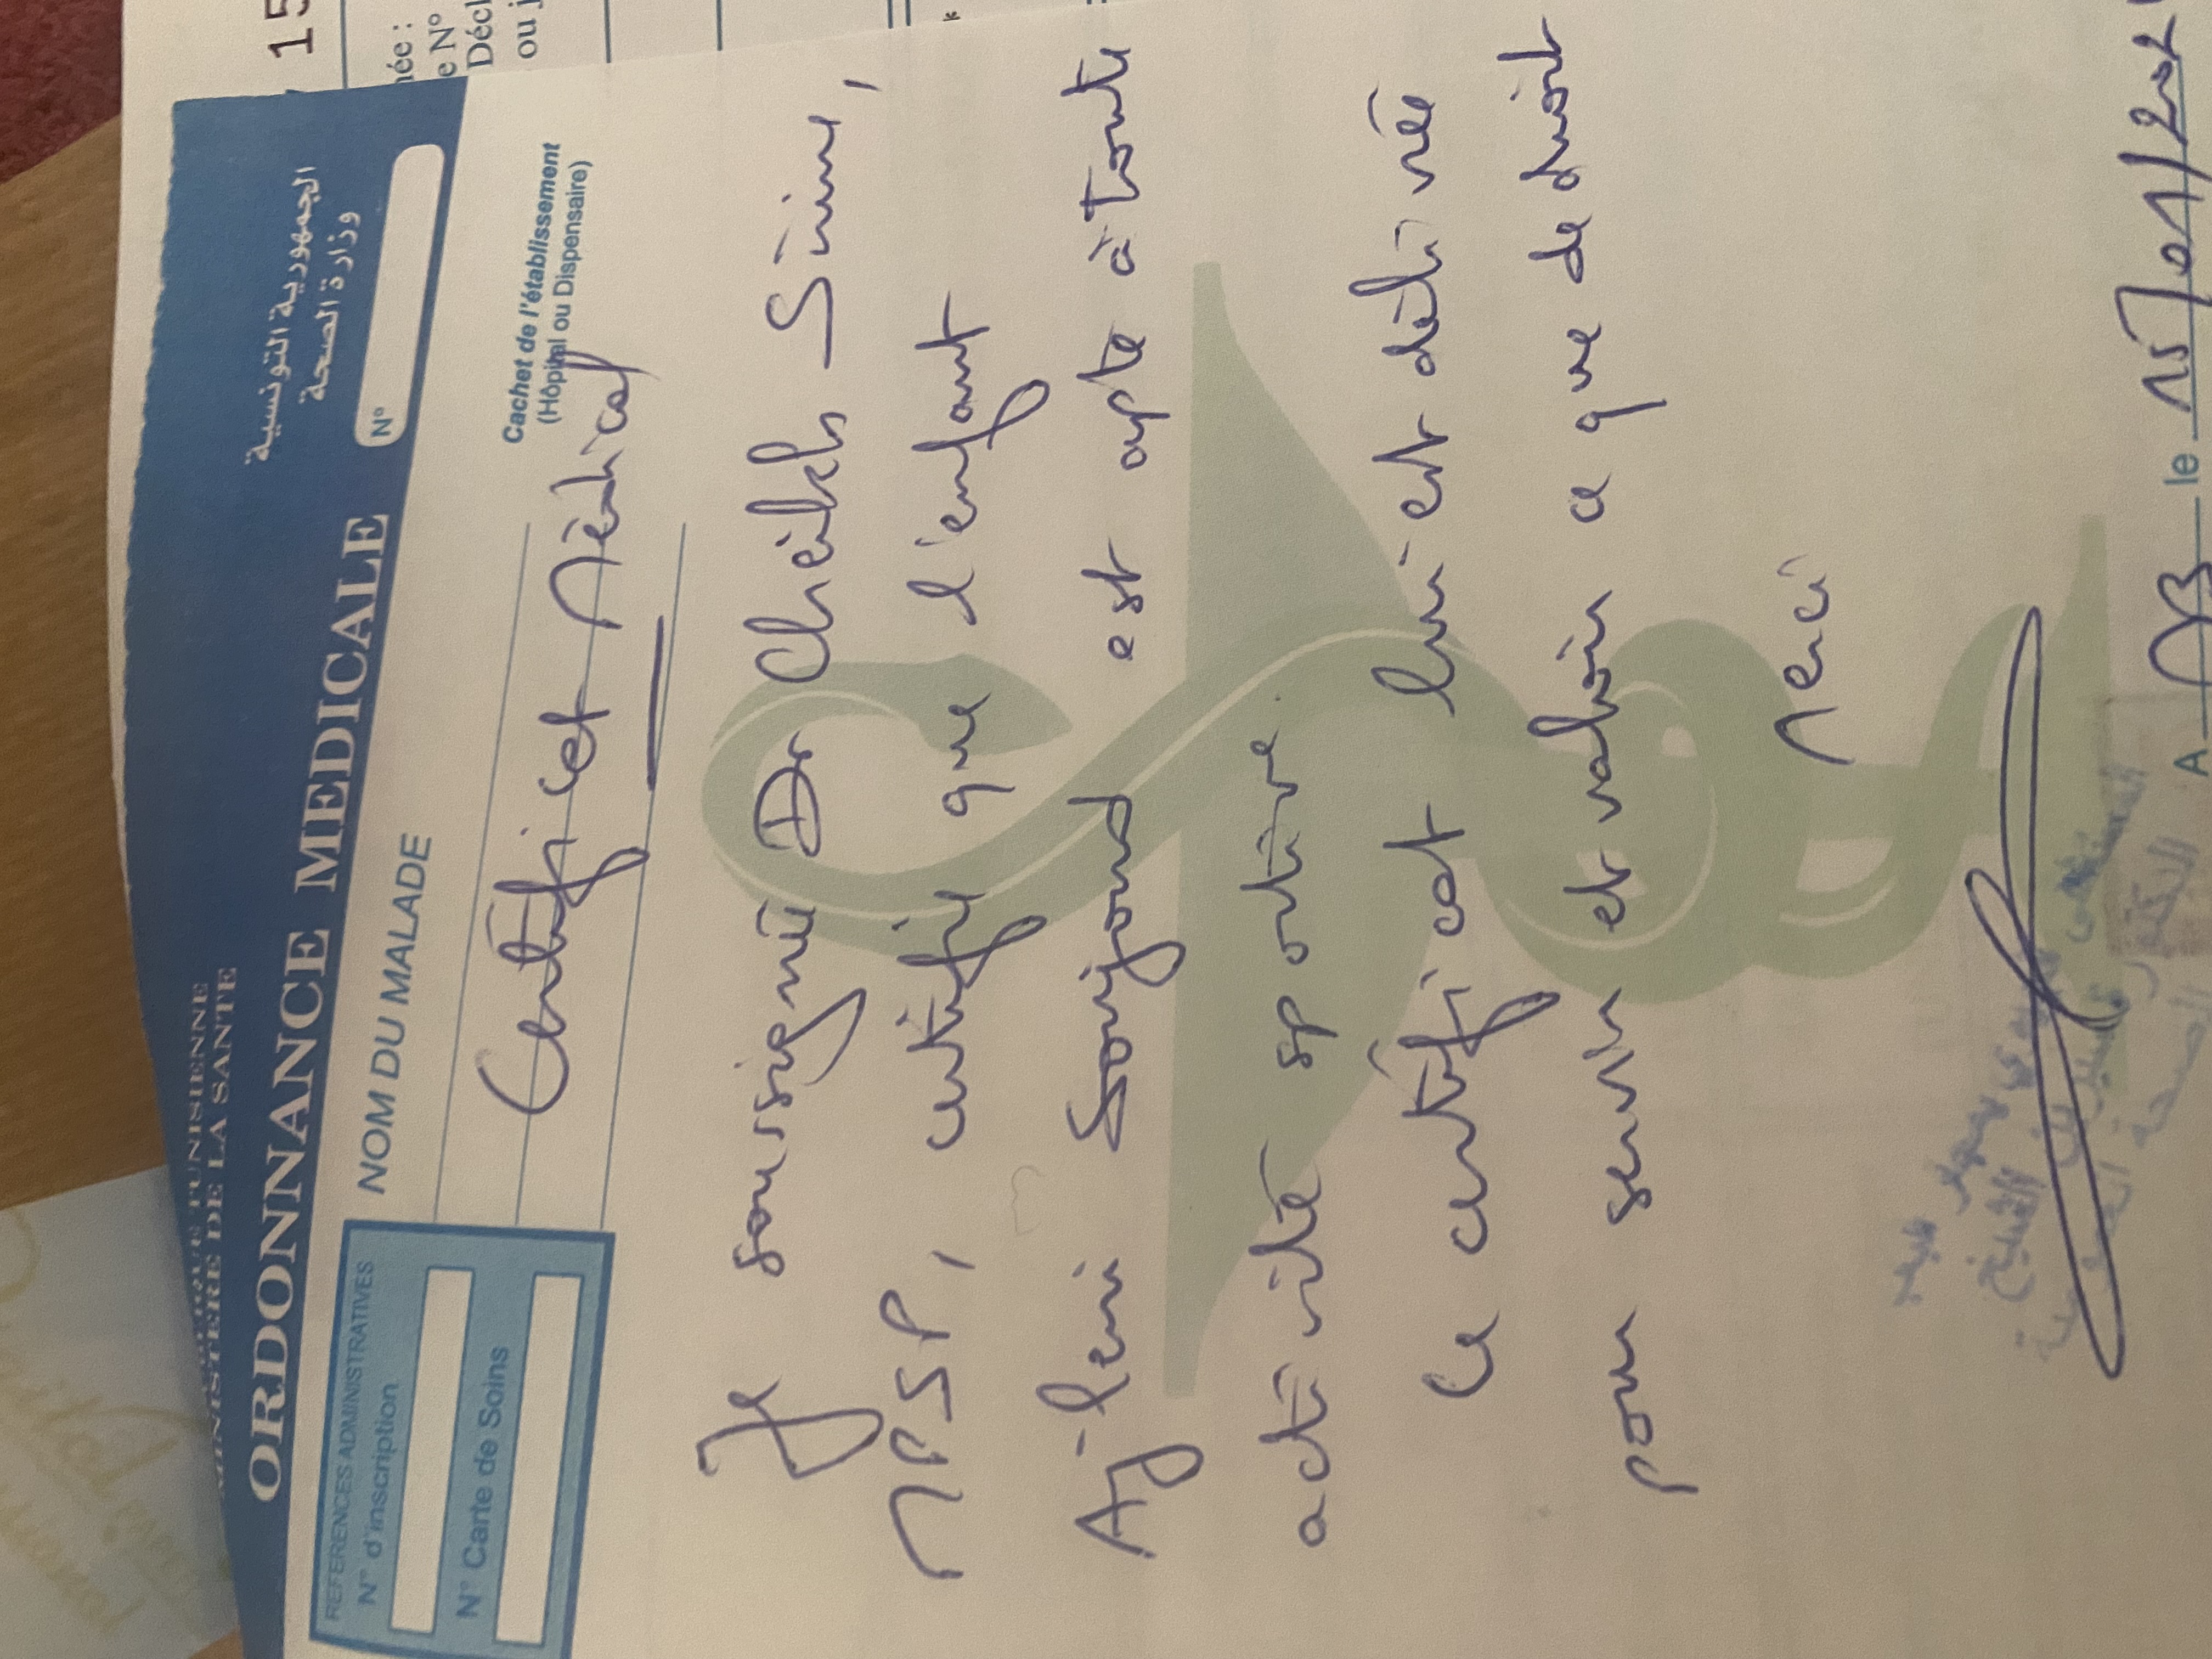 15
née :
e N°
Décl
ou j
REPUBLIQUE TUNISIENNE
MINISTERE DE LA SANTE
الجمهورية التونسية
وزارة الصحة
ORDONNANCE MEDICALE
N°
REFERENCES ADMINISTRATIVES
N° d'inscription
N° Carte de Soins
NOM DU MALADE
Cachet de l'établissement
(Hôpital ou Dispensaire)
Certificat Médical
Je soussigné Dr Cheikh Sirine,
MSP, certifie que l'enfant
Ajleni est apte à toute
activité sportive.
Ce certificat lui est délivré
pour servir et valoir ce que de droit
Merci
A le 15/01/202